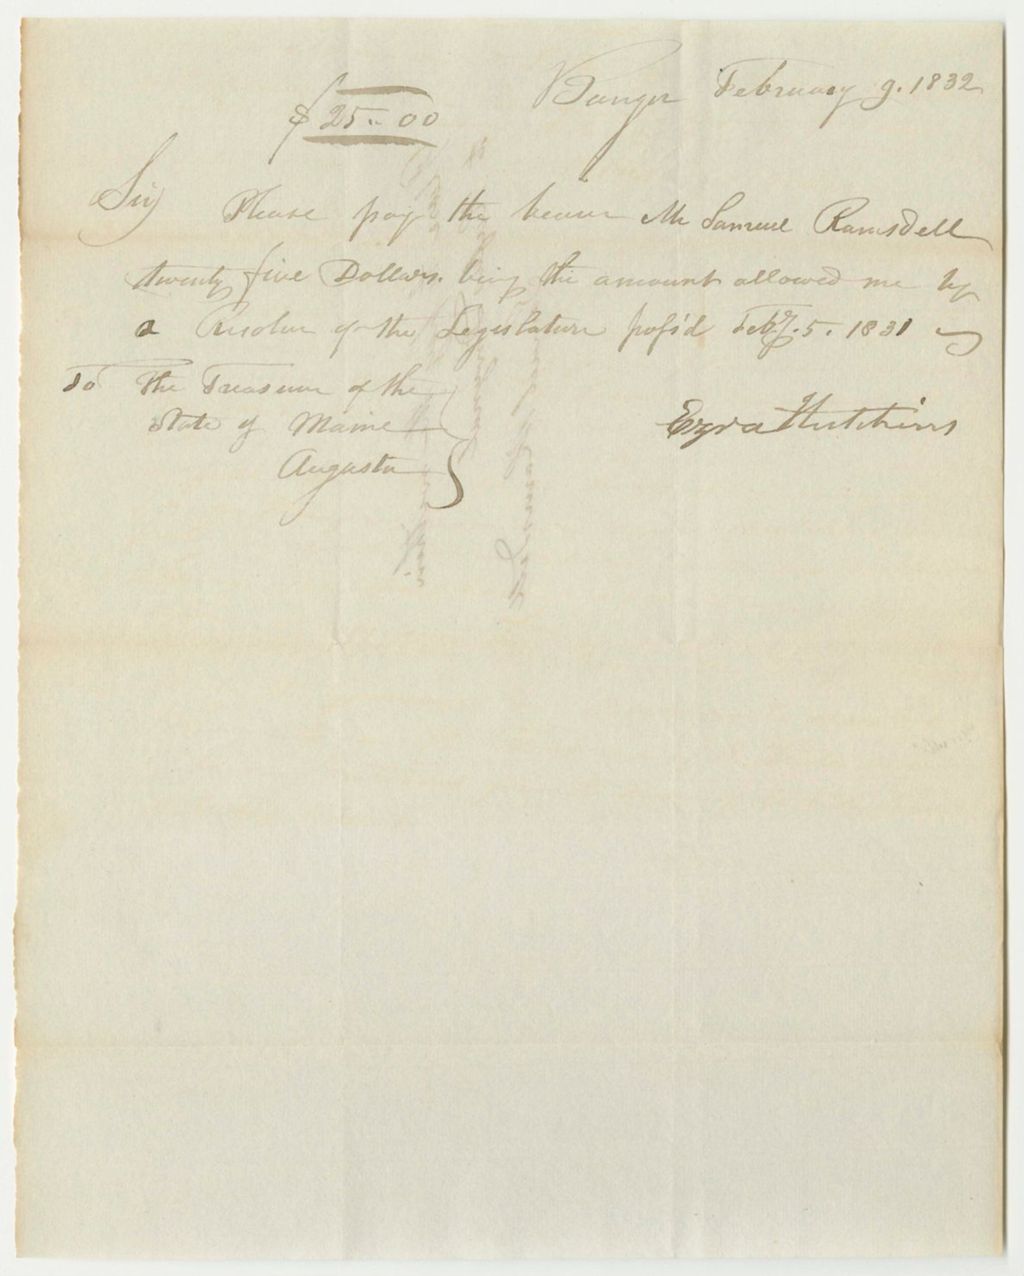 Bangor February 9. 1832
$25.00
Sir Please pay the bearer Mr Samuel Ramsdell
twenty five Dollars. being the amount allowed me by
a Resolve of the Legislature pass'd Feby. 5. 1831
To The Treasurer of the
State of Maine
Augusta
Ezra Hutchins